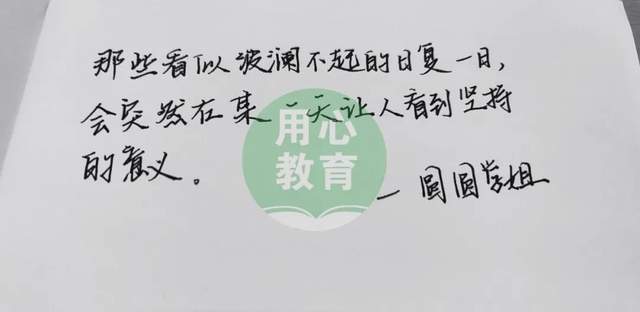 那些看似波澜不起的日复一日，
会突然在某一天让人看到坚持
的意义。
—圆圆学姐
用心
教育